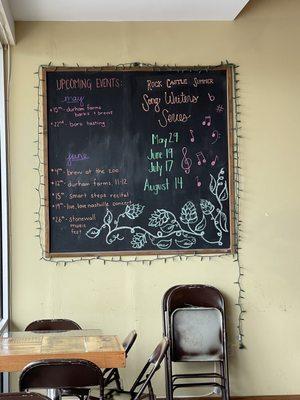 UPCOMING EVENTS:
may
• 15th - durham farms
barks + brews
• 22nd - boro tasting
june
• 9th - brew at the zoo
• 12th - durham farms, 11-12
• 15th - smart steps recital
• 19th - live love nashville concert
• 26th - stonewall
music
fest
ROCK CASTLE SUMMER
Song Writers
Series
MAY 29
June 19
July 17
August 14